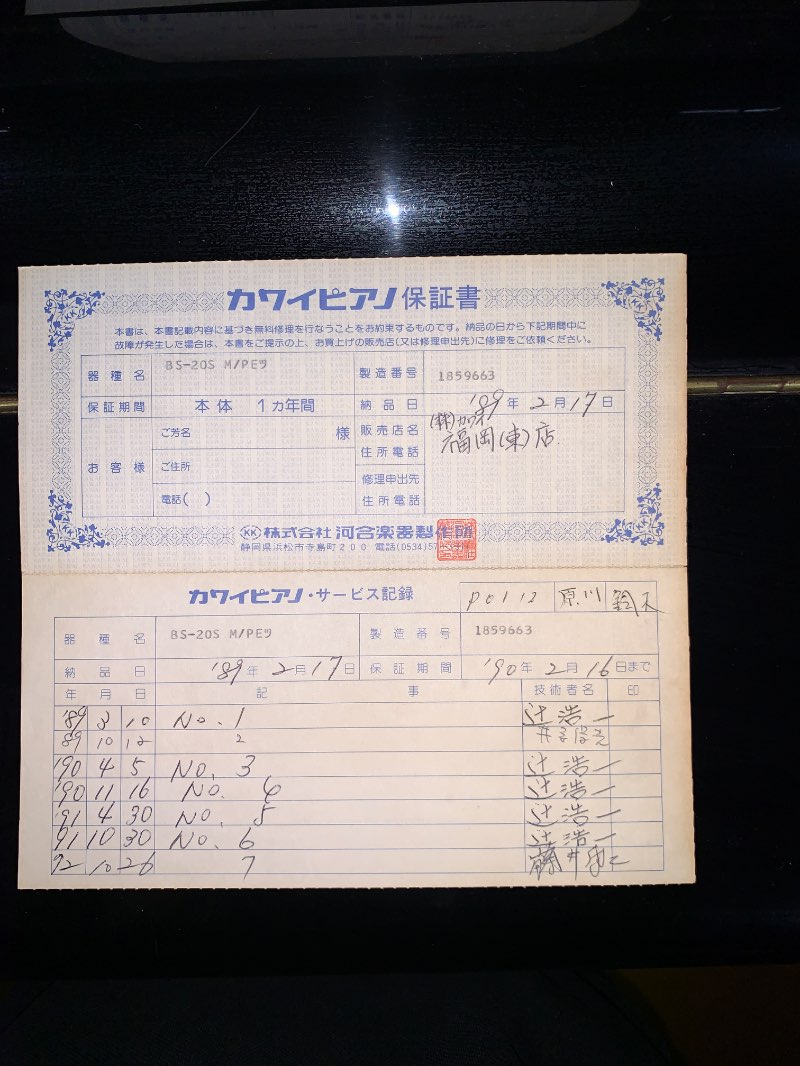 カワイピアノ 保証書
本書は、本書記載内容に基づき無料修理を行なうことをお約束するものです。納品の日から下記期間中に
故障が発生した場合は、本書をご提示の上、お買上げの販売店(又は修理申出先)に修理をご依頼ください。
器種名 BS-20S M/PEツ 製造番号 1859663
保証期間 本体 1ヵ年間 納品日 '89年 2月 17日
お客様 ご芳名 様 販売店名 (株)カワイ
ご住所 住所電話 福岡(東)店
修理申出先
電話( ) 住所電話
KK 株式会社 河合楽器製作所
静岡県浜松市寺島町200 電話(0534)57
カワイピアノ・サービス記録 原川
器種名 BS-20S M/PEツ 製造番号 1859663
納品日 '89年 2月 17日 保証期間 '90年 2月 16日まで
年月日 記事 技術者名 印
'89 3 10 No. 1 辻浩一
89 10 12 2
'90 4 5 No. 3 辻浩一
'90 11 16 No. 4 辻浩一
'91 4 30 No. 5 辻浩一
'91 10 30 No. 6 辻浩一
'92 10 26 7